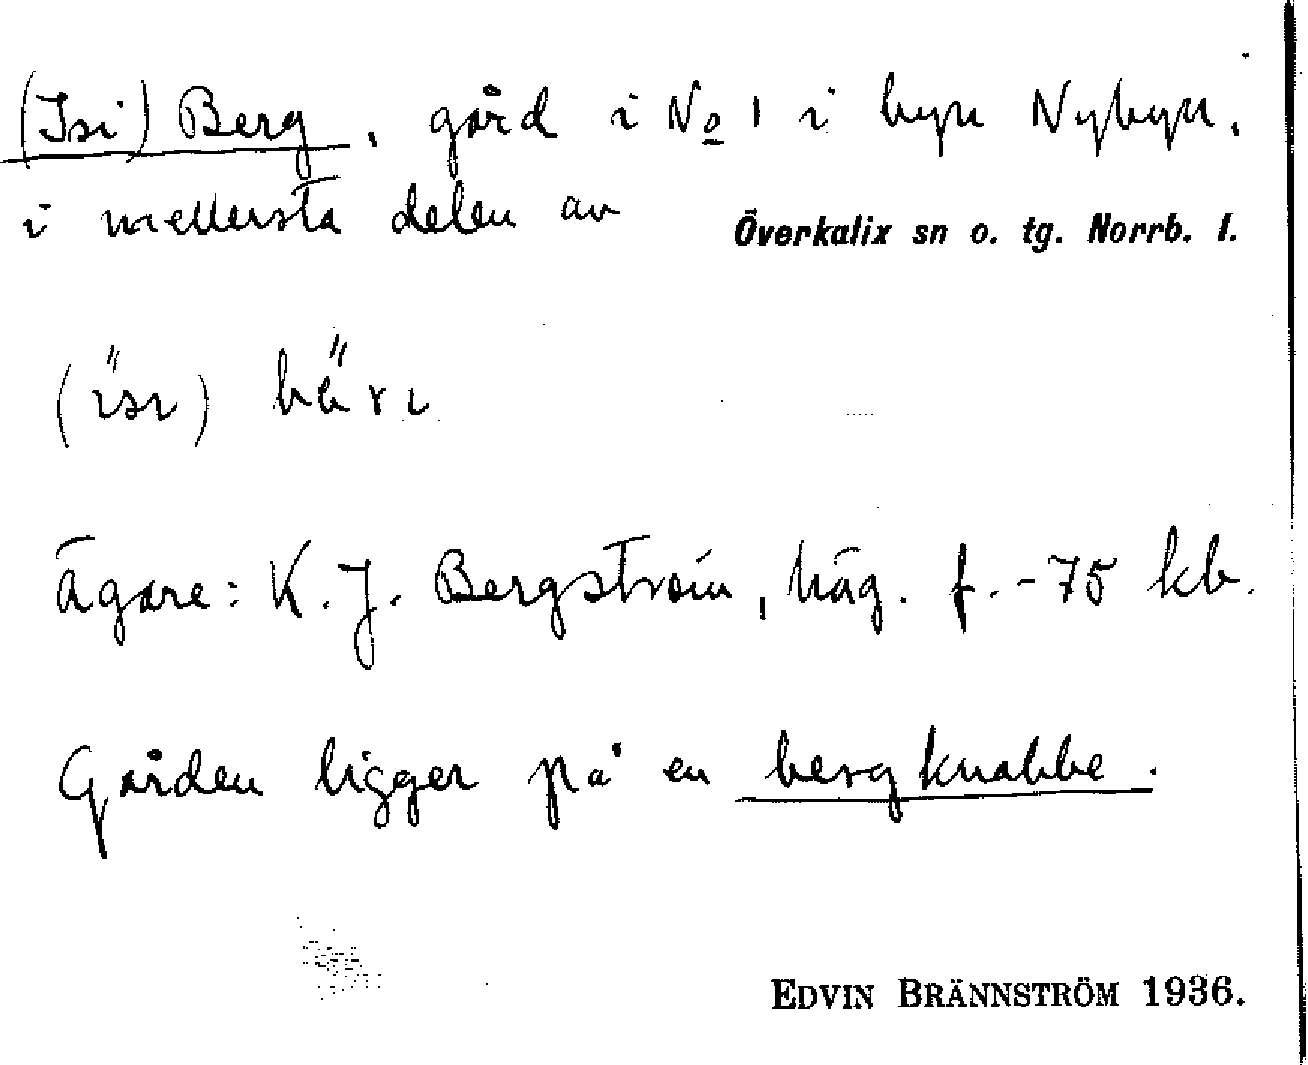 (Isi) Berg, gård i No 1 i byn Nybyn,
i mellersta delen av Överkalix sn o. tg. Norrb. l.
(isi)
ägare: K. J. Bergström, häg. f. -75 kb.
Gården ligger på en bergknabbe.
EDVIN BRÄNNSTRÖM 1936.